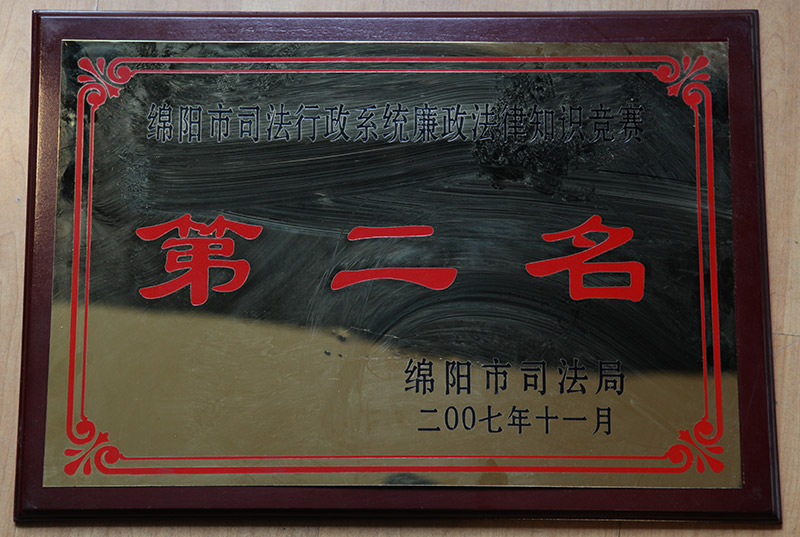 绵阳市司法行政系统廉政法律知识竞赛
第二名
绵阳市司法局
二00七年十一月